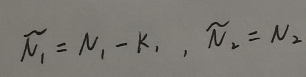 Ñ₁ = N₁ - K₁ , Ñ₂ = N₂